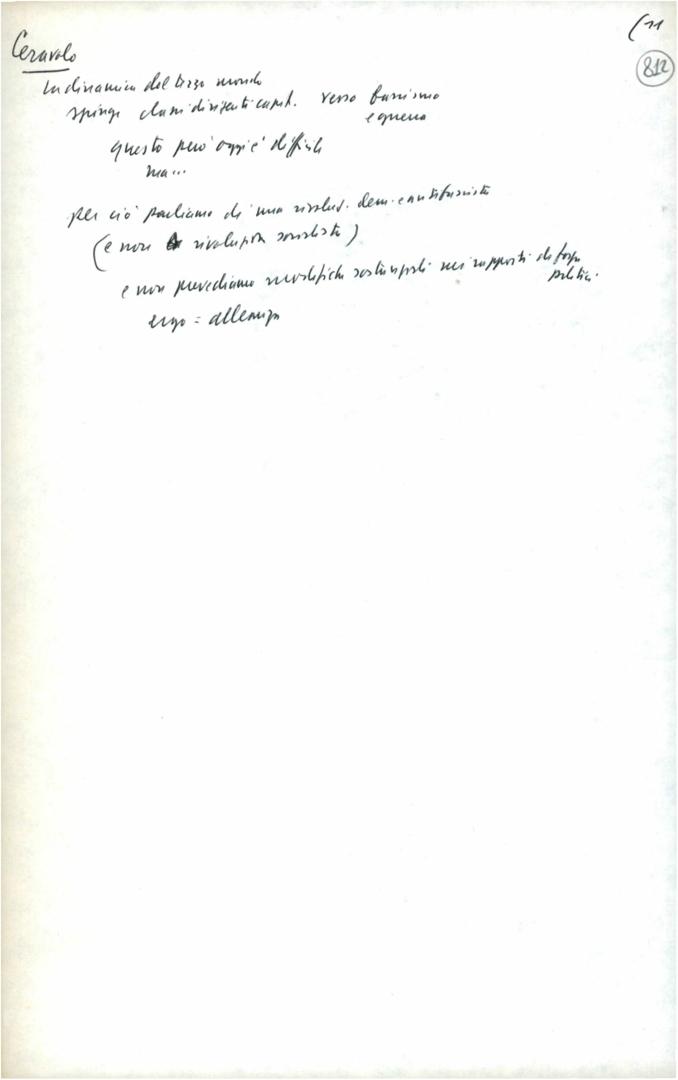 (11
812
Ceravolo
La dinamica del terzo mondo
spinge classi dirigenti capit. verso fascismo
e guerra
questo però oggi è difficile
ma...
per ciò parliamo di una rivoluz. dem. e antifascista
(e non rivoluzione socialista)
e non prevediamo modifiche sostanziali nei rapporti di forza
politici.
ergo = alleanza